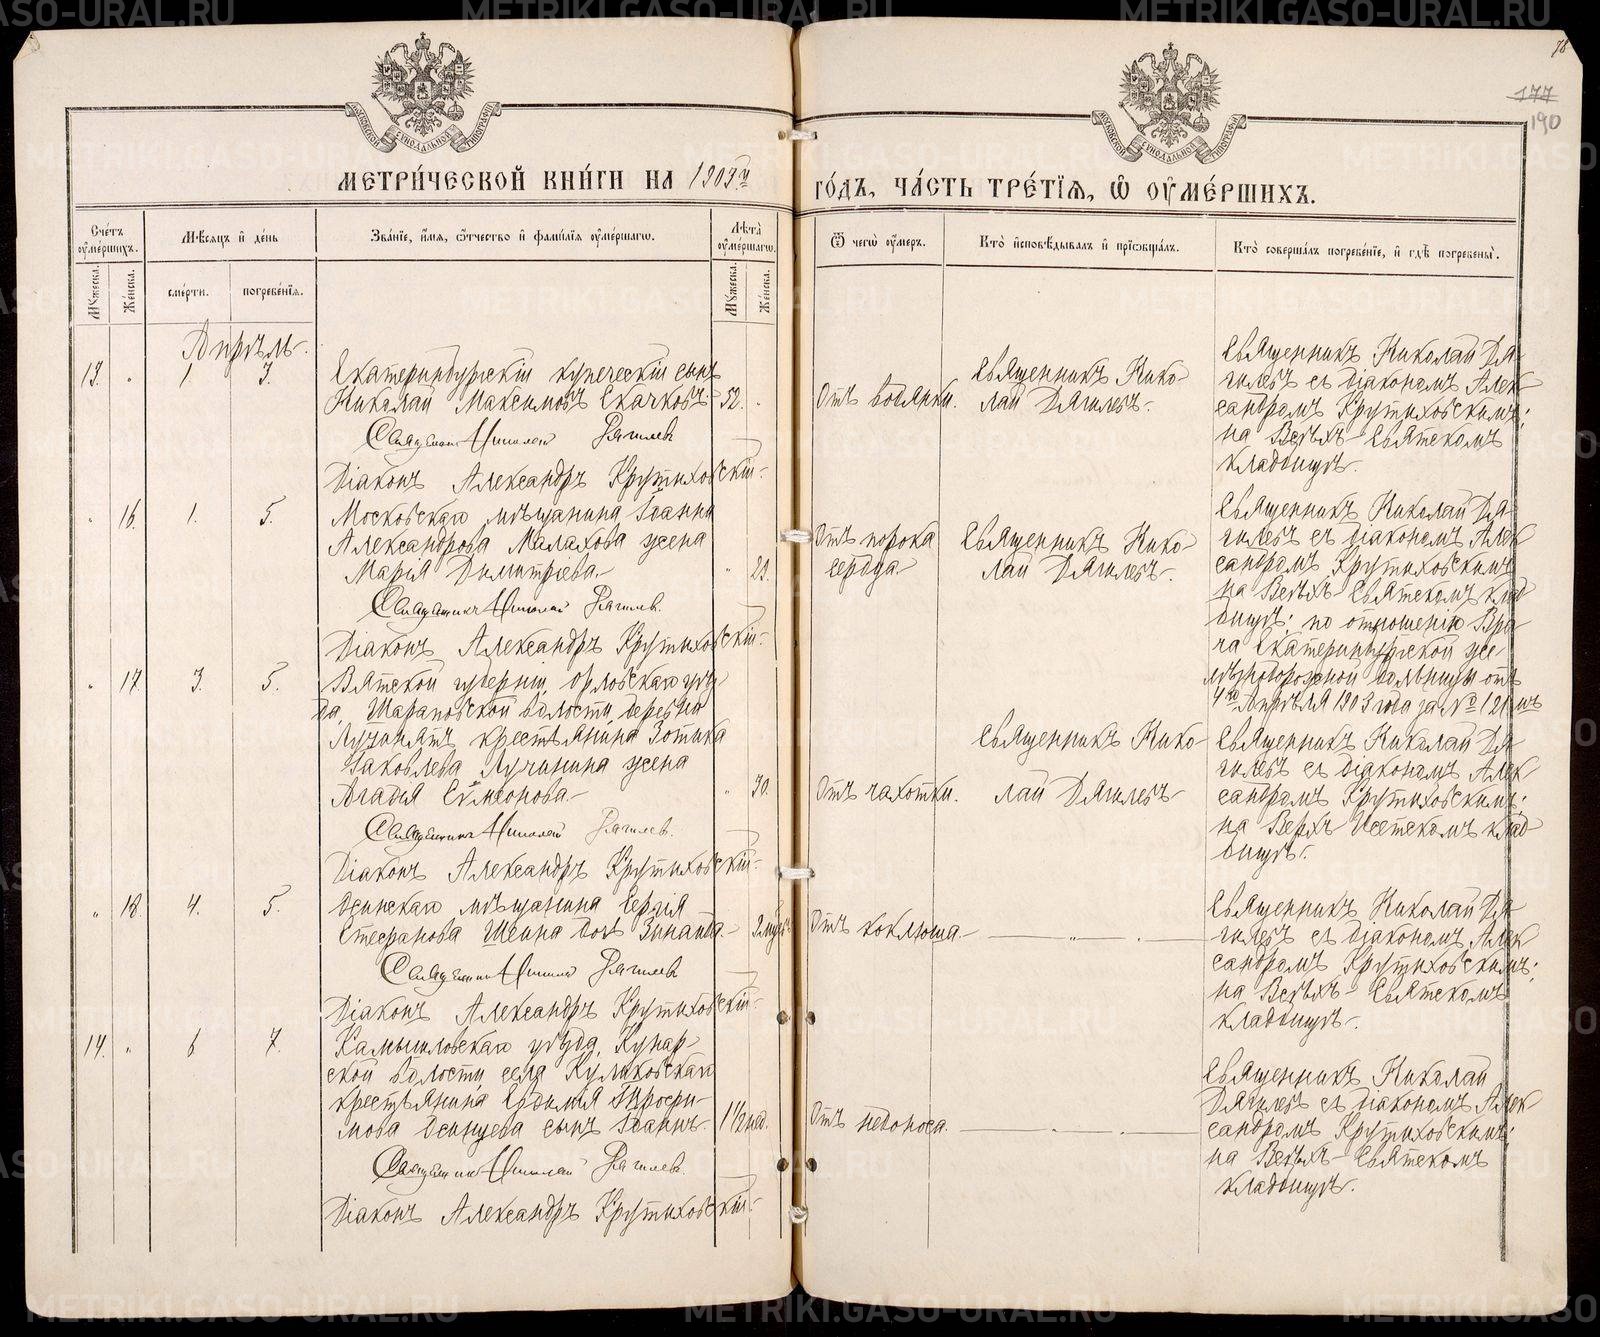 78
177
190
МОСКОВСКОЙ СѴНОДАЛЬНОЙ ТИПОГРАФІИ
МОСКОВСКОЙ СѴНОДАЛЬНОЙ ТИПОГРАФІИ
МЕТРИ́ЧЕСКОЙ КНИ́ГИ НА 1903й
ГО́ДЪ, ЧА́СТЬ ТРЕ́ТІѦ, Ѡ҆ ОУ҆МЕ́РШИХЪ.
Сче́тъ оу҆ме́ршихъ.
Мѣ́сѧцъ и҆ де́нь
Зва́нїе, и҆́мѧ, ѻ҆́тчество и҆ фамі́лїѧ оу҆ме́ршагѡ.
Лѣ́та оу҆ме́ршагѡ.
Ѿ чегѡ̀ оу҆́меръ.
Кто̀ и҆сповѣ́дывалъ и҆ прїѡбща́лъ.
Кто̀ соверша́лъ погребе́нїе, и҆ гдѣ̀ погребены̀.
Мꙋ́жеска.
Же́нска.
сме́рти.
погребе́нїѧ.
Мꙋ́жеска.
Же́нска.
Апрѣль.
13. " 1 3.
Екатеринбургскій купеческій сынъ
Николай Максимовъ Скачковъ. 52. "
Священникъ Николай Дягилев
Діаконъ Александръ Крутиховскій.
Отъ водянки.
Священникъ Нико-
лай Дягилевъ.
Священникъ Николай Дя-
гилевъ съ діакономъ Алек-
сандромъ Крутиховскимъ;
на Всѣхъ-Святскомъ
кладбищѣ.
" 16. 1. 5.
Московскаго мѣщанина Іоанна
Александрова Малахова жена
Марія Димитріева. " 29.
Священникъ Николай Дягилев.
Діаконъ Александръ Крутиховскій.
Отъ порока
сердца.
Священникъ Нико-
лай Дягилевъ.
Священникъ Николай Дя-
гилевъ съ діакономъ Алек-
сандромъ Крутиховскимъ
на Всѣхъ-Святскомъ клад-
бищѣ; по отношенію Вра-
ча Екатеринбургской же-
лѣзнодорожной больницы отъ
4го Апрѣля 1903 года за № 121мъ
" 17. 3. 5.
Вятской губерніи Орловскаго уѣз-
да, Шараповской волости деревни
Лучинятъ крестьянина Зотика
Іаковлева Лучинина жена
Агаѳія Сѵмеонова. " 30.
Священникъ Николай Дягилев.
Діаконъ Александръ Крутиховскій.
Отъ чахотки.
Священникъ Нико-
лай Дягилевъ
Священникъ Николай Дя-
гилевъ съ діакономъ Алек-
сандромъ Крутиховскимъ;
на Верхъ Исетскомъ клад-
бищѣ.
" 18. 4. 5.
Осинскаго мѣщанина Сергія
Стефанова Шеина дочь Зинаида.
Священникъ Николай Дягилев
Діаконъ Александръ Крутиховскій.
Отъ коклюша.
Священникъ Николай Дя-
гилевъ съ діакономъ Алек-
сандромъ Крутиховскимъ;
на Всѣхъ-Святскомъ
кладбищѣ.
14. " 6 7.
Камышловскаго уѣзда, Кунар-
ской волости, села Куликовскаго
крестьянина
Осинцева сынъ Іоаннъ. 1 1/2 нед.
Священникъ Николай Дягилев.
Діаконъ Александръ Крутиховскій.
Отъ недоноса.
Священникъ Николай
Дягилевъ съ діакономъ Алек-
сандромъ Крутиховскимъ;
на Всѣхъ-Святскомъ
кладбищѣ.
METRIKI.GASO-URAL.RU